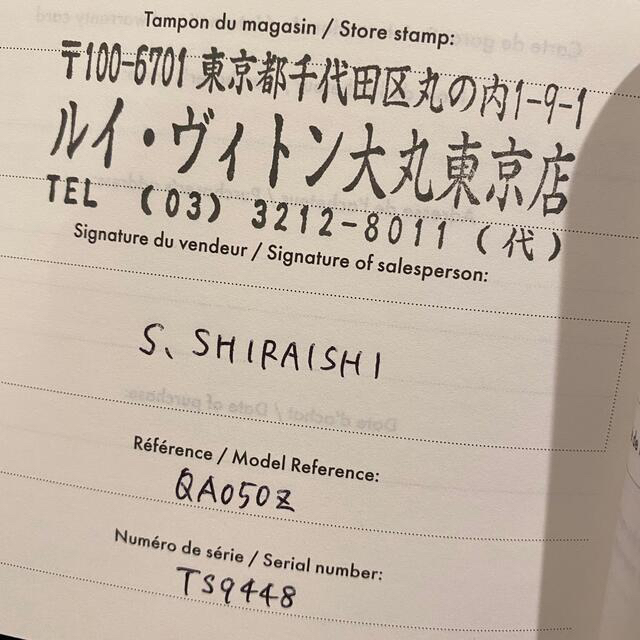 Tampon du magasin / Store stamp:
〒100-6701 東京都千代田区丸の内1-9-1
ルイ・ヴィトン大丸東京店
TEL (03) 3212-8011 (代)
Signature du vendeur / Signature of salesperson:
S. SHIRAISHI
Référence / Model Reference:
QA050Z
Numéro de série / Serial number:
TS9448